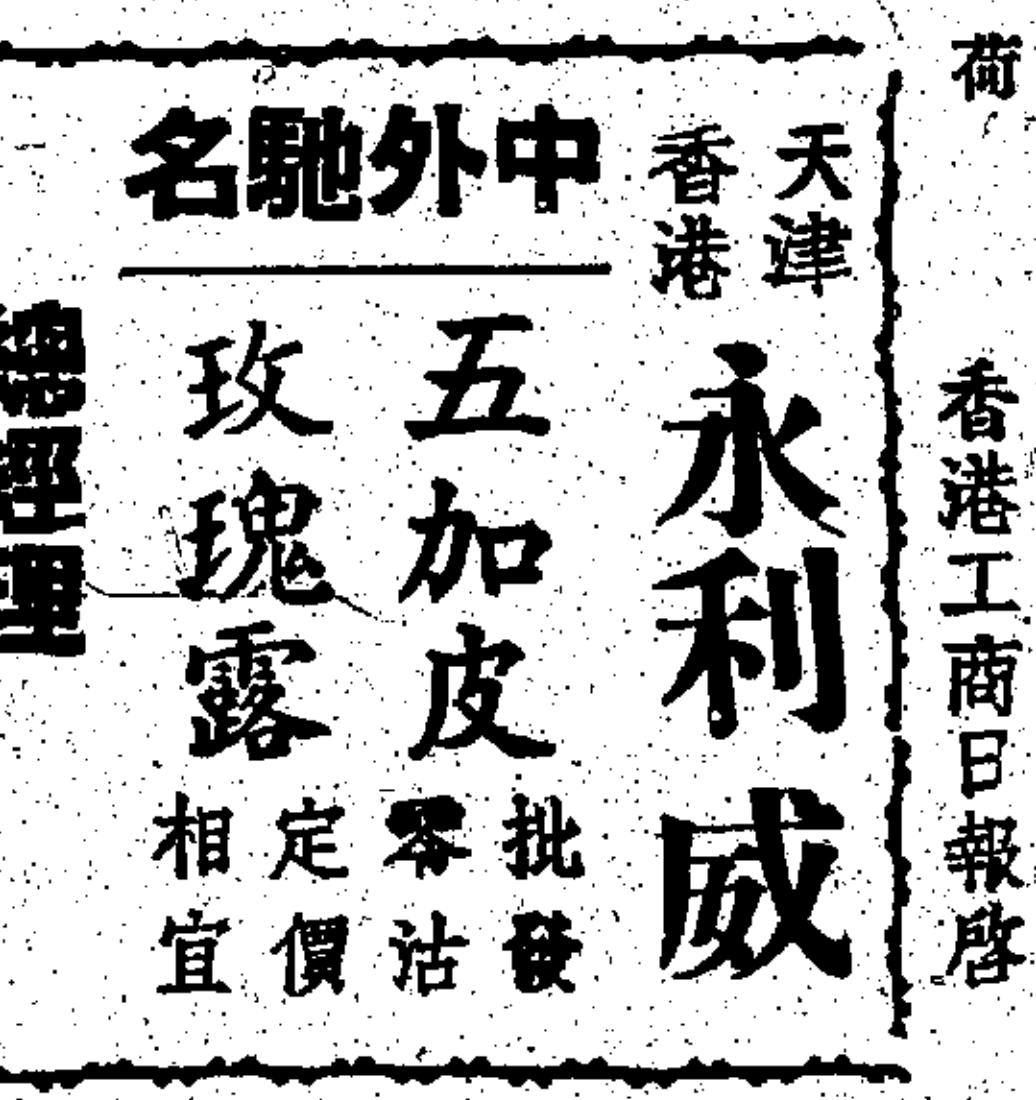 荷
香港工商日報啓
天津
香港
永利威
中外馳名
五加皮
玫瑰露
批發
零沽
定價
相宜
總經理